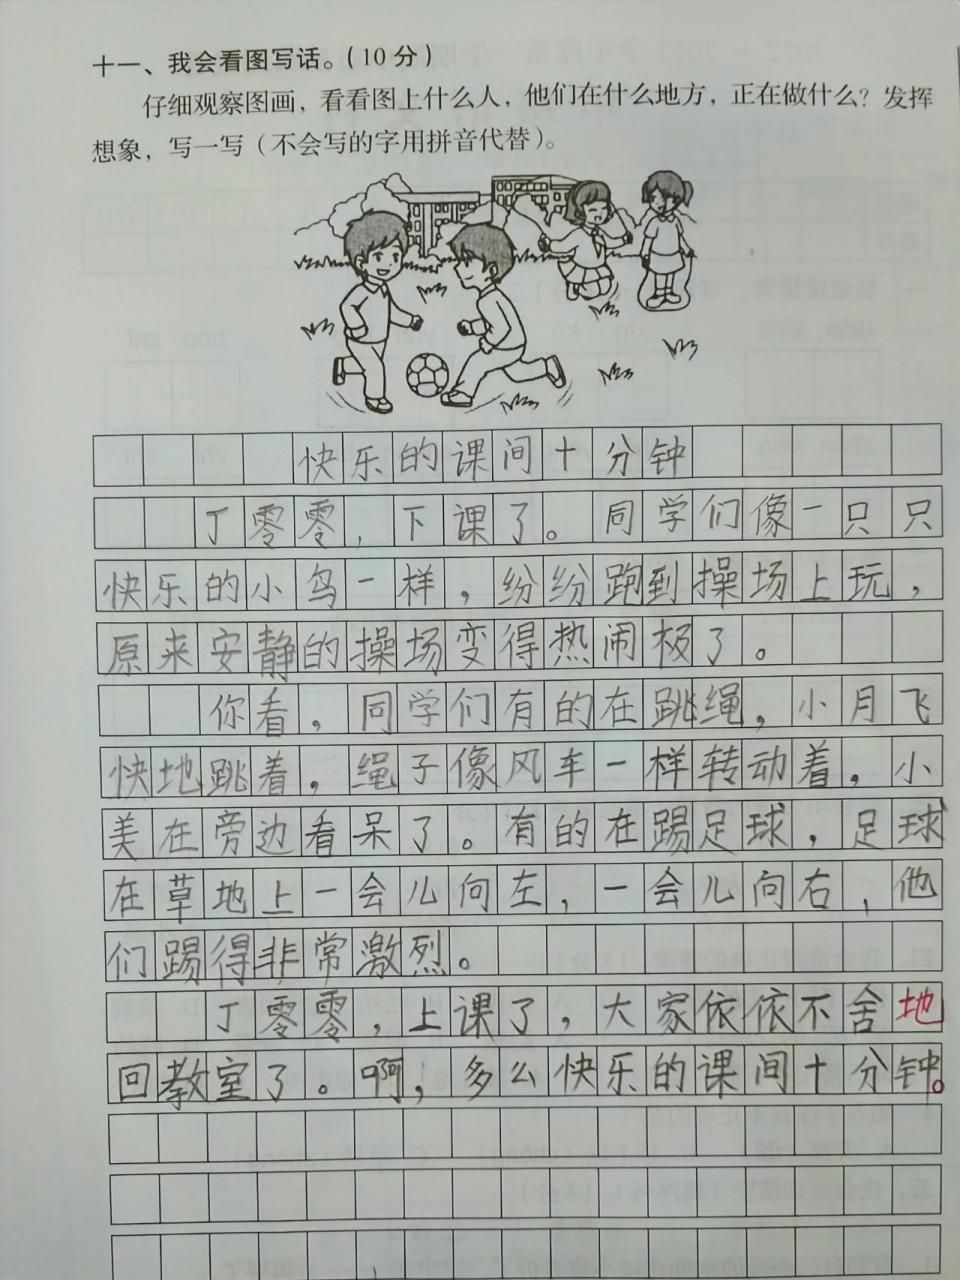 十一、我会看图写话。(10分)
仔细观察图画，看看图上什么人，他们在什么地方，正在做什么？发挥
想象，写一写(不会写的字用拼音代替)。
快乐的课间十分钟
丁零零，下课了。同学们像一只只
快乐的小鸟一样，纷纷跑到操场上玩，
原来安静的操场变得热闹极了。
你看，同学们有的在跳绳，小月飞
快地跳着，绳子像风车一样转动着，小
美在旁边看呆了。有的在踢足球，足球
在草地上一会儿向左，一会儿向右，他
们踢得非常激烈。
丁零零，上课了，大家依依不舍地
回教室了。啊，多么快乐的课间十分钟。